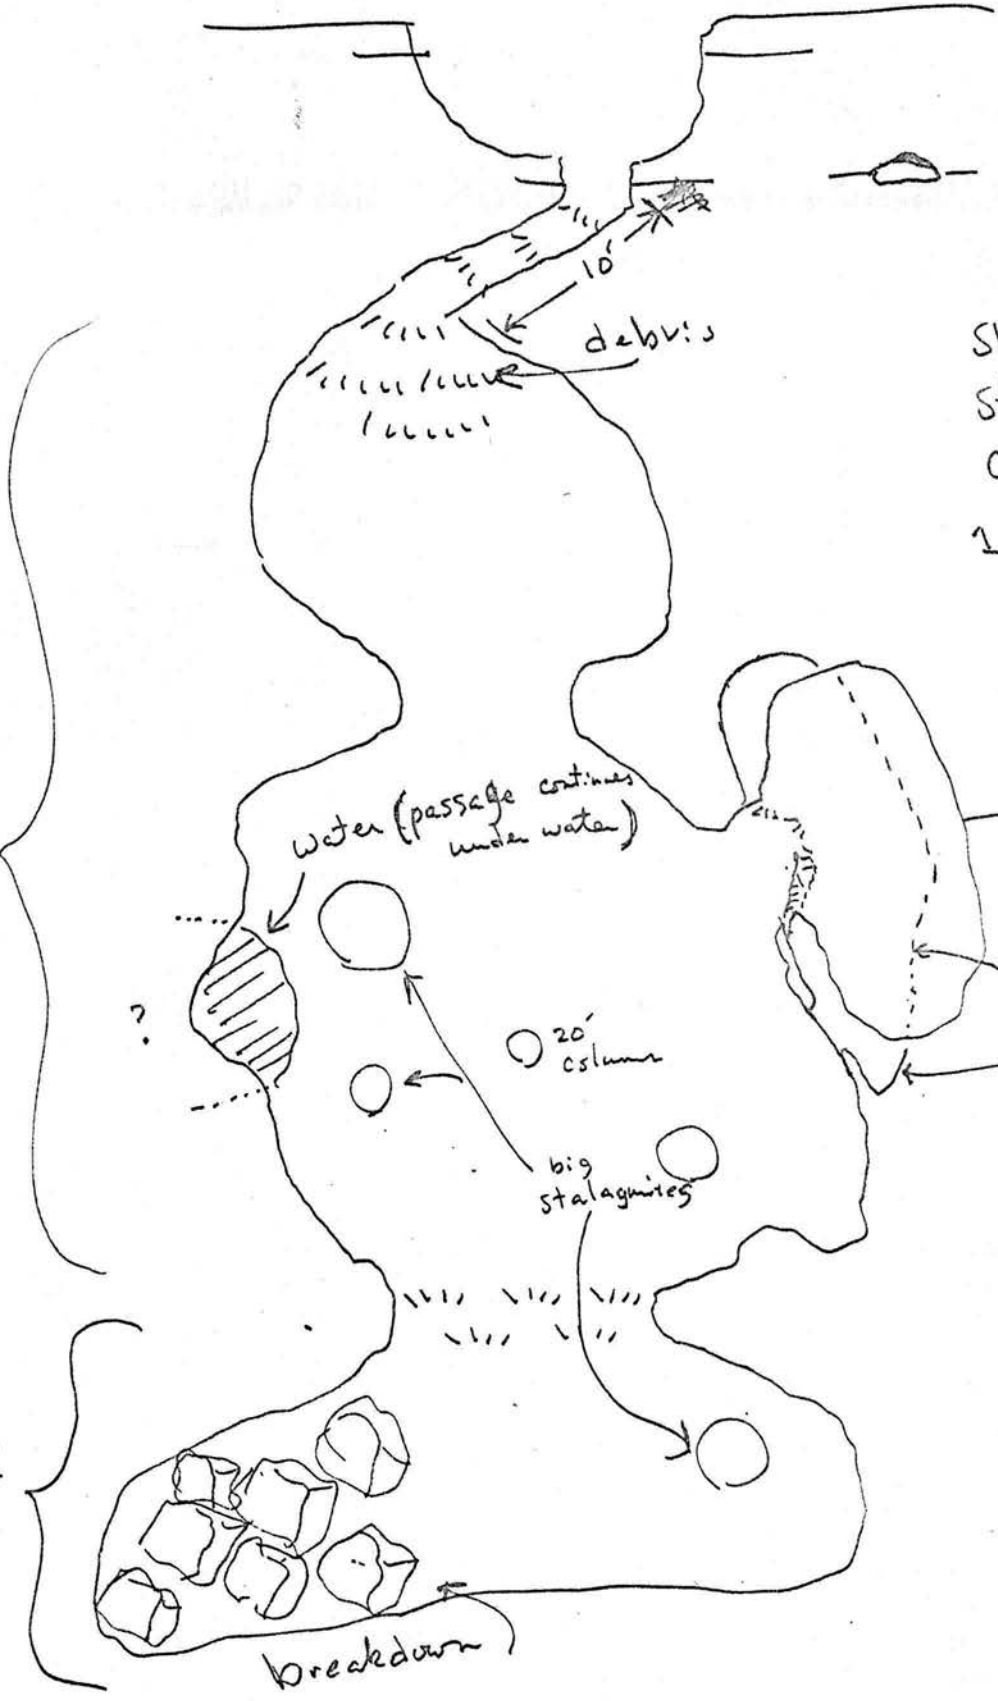 10'
debris
water (passage continues
under water)
?
20'
column
big
stalagmites
breakdown